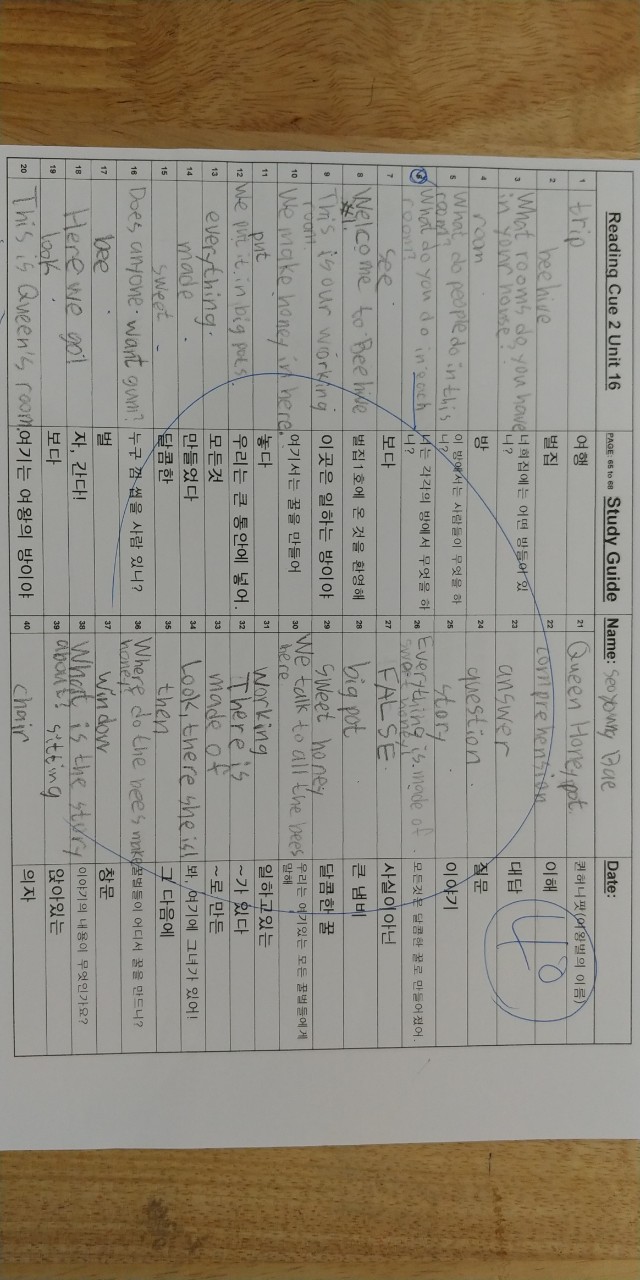 Reading Cue 2 Unit 16 PAGE 65 to 68 Study Guide Name: Seoyoung Bae Date:
1 trip 여행
2 beehive 벌집
3 What rooms do you have in your house? 너희집에는 어떤 방들이 있니?
4 room 방
5 What do people do in this room? 이 방에서는 사람들이 무엇을 하니?
6 What do you do in each room? 너는 각각의 방에서 무엇을 하니?
7 see 보다
8 Welcome to Beehive #1. 벌집1호에 온 것을 환영해
9 This is our working room. 이곳은 일하는 방이야
10 We make honey in here. 여기서는 꿀을 만들어
11 put 놓다
12 We put it in big pots. 우리는 큰 통안에 넣어.
13 everything. 모든것
14 made 만들었다
15 sweet 달콤한
16 Does anyone want gum? 누구 껌 씹을 사람 있니?
17 bee 벌
18 Here we go! 자, 간다!
19 look 보다
20 This is Queen's room 여기는 여왕의 방이야
21 Queen Honeypot. 퀸허니팟(여왕벌의 이름)
22 comprehension 이해
23 answer 대답
24 question 질문
25 story 이야기
26 Everything is made of sweet honey! 모든것은 달콤한 꿀로 만들어졌어.
27 FALSE. 사실이아닌
28 big pot 큰 냄비
29 sweet honey 달콤한 꿀
30 We talk to all the bees here 우리는 여기있는 모든 꿀벌들에게 말해
31 working 일하고있는
32 There is ~가 있다
33 made of ~로 만든
34 Look, there she is! 봐, 여기에 그녀가 있어!
35 then 그 다음에
36 Where do the bees make honey? 꿀벌들이 어디서 꿀을 만드니?
37 window 창문
38 What is the story about? 이야기의 내용이 무엇인가요?
39 sitting 앉아있는
40 chair 의자
40